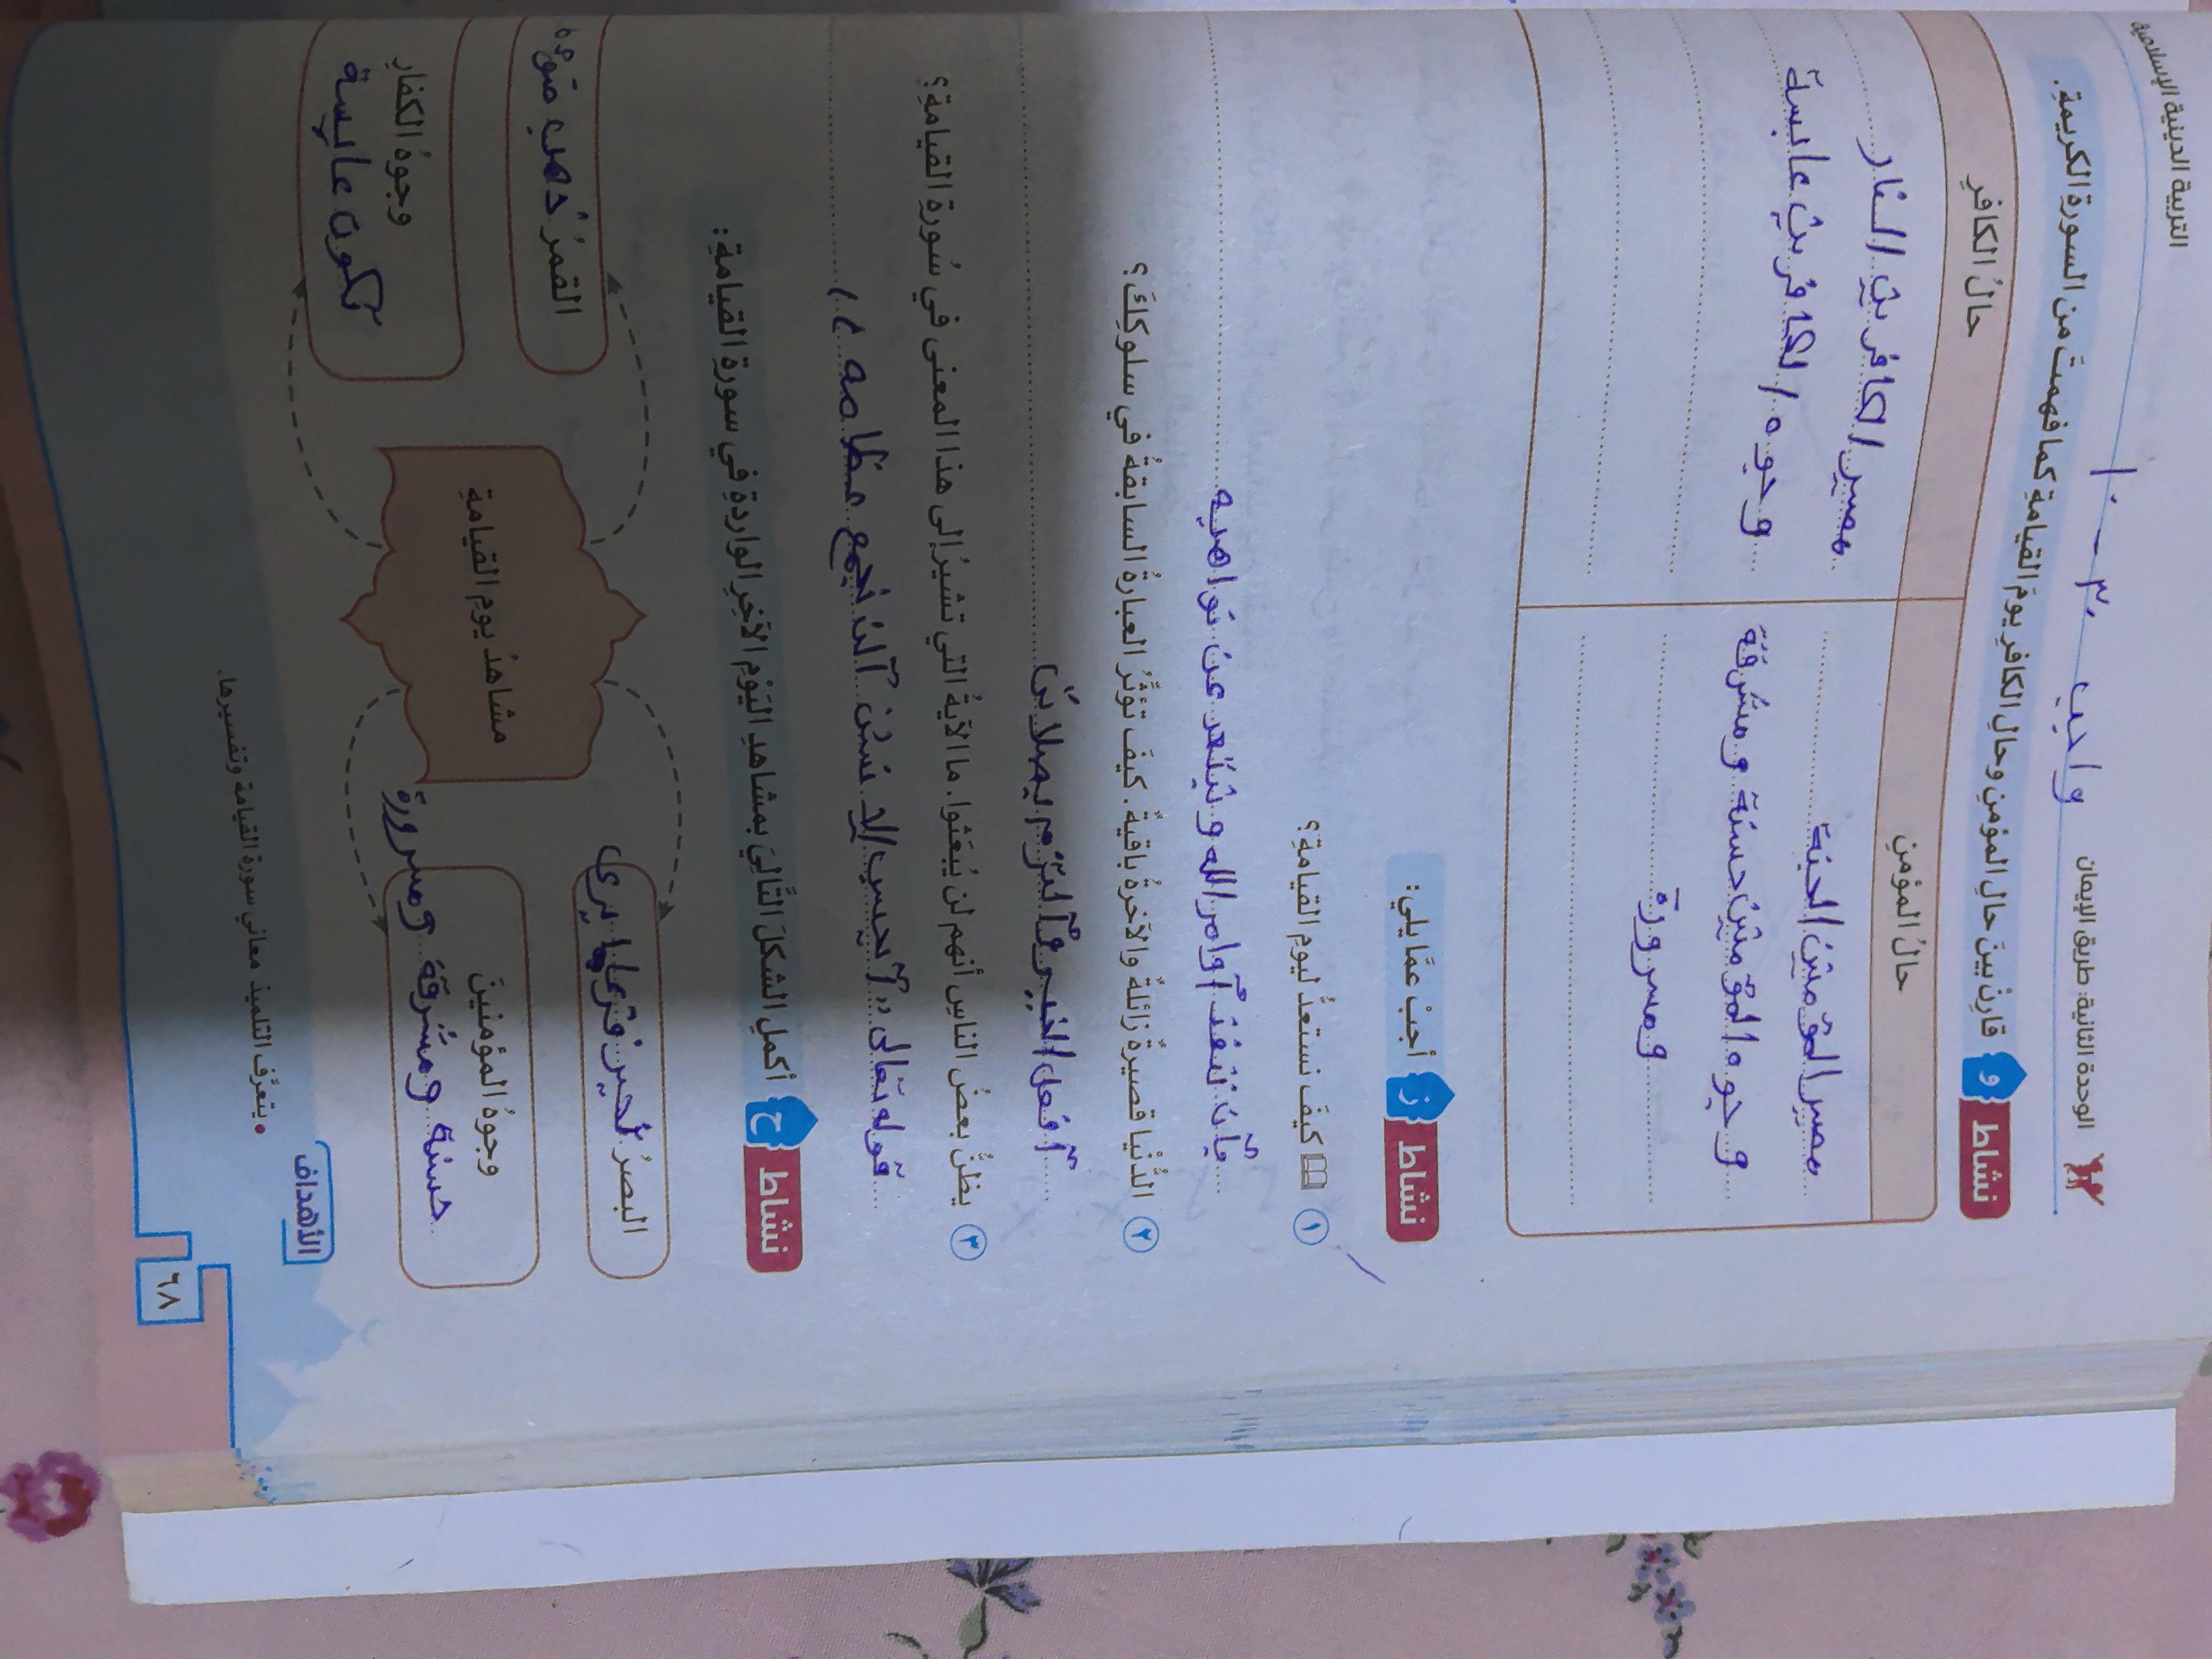 التربية الدينية الإسلامية
الوحدة الثانية: طريق الإيمان
واجب ٣٠ - ١
نشاط و قارِنْ بينَ حالِ المؤمنِ وحالِ الكافرِ يومَ القيامةِ كما فهمتَ من السورةِ الكريمةِ.
حالُ المؤمنِ
حالُ الكافرِ
مصير المؤمنين الجنة
وجوه المؤمنين حسنة ومشرقة
ومسرورة
مصير الكافرين النار
وجوه الكافرين عابسة
نشاط ز أجبْ عمَّا يلي:
١ كيفَ نستعدُّ ليوم القيامةِ؟
بأن ننفذ أوامر الله و نبتعد عن نواهيه
٢ الدُّنيا قصيرةٌ زائلةٌ والآخرةُ باقيةٌ. كيفَ تؤثِّرُ العبارةُ السابقةُ في سلوكِكَ؟
أفعل الخير وألتزم بصلاتي
٣ يظنُّ بعضُ الناسِ أنهم لن يُبعَثوا. ما الآيةُ التي تشيرُ إلى هذا المعنى في سُورةِ القيامةِ؟
قوله تعالى "أيحسب الإنسن ألن نجمع عظامه ٣"
نشاط ح أكملِ الشكلَ التَّاليَ بمشاهدِ اليَوْمِ الآخِرِ الواردةِ في سورةِ القيامةِ:
البصرُ تحير فزعا بما يرى
القمرُ ذهب ضوءه
مشاهدُ يومِ القيامةِ
وجوهُ المؤمنينَ
حسنة ومشرقة ومسرورة
وجوهُ الكفارِ
تكون عابسة
الأهداف
• يتعرَّف التلميذ معاني سورة القيامة وتفسيرها.
٦٨